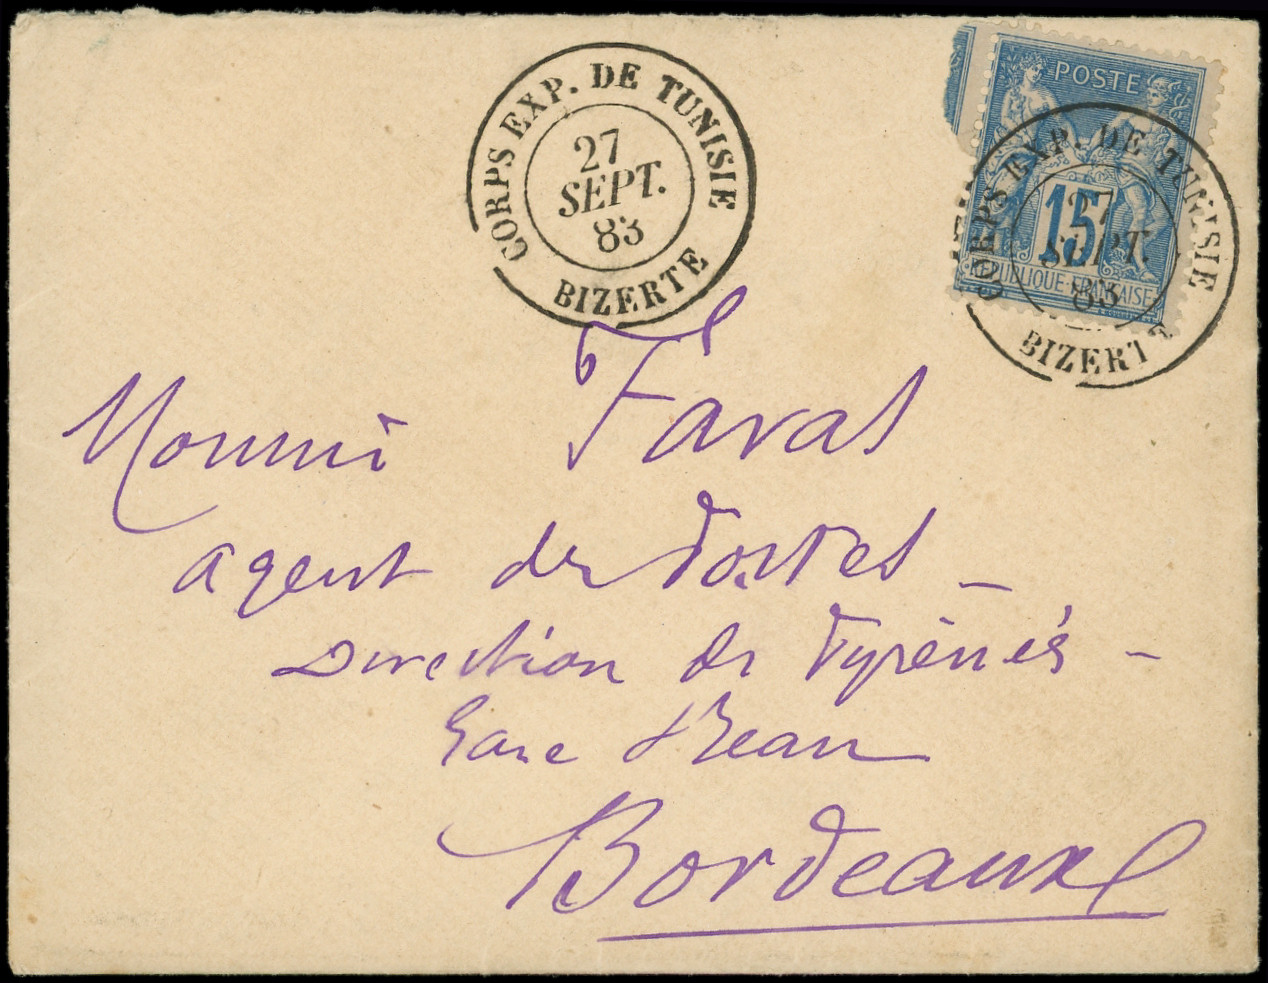 CORPS EXP. DE TUNISIE
27
SEPT.
83
BIZERTE
POSTE
15
REPUBLIQUE FRANÇAISE
CORPS EXP. DE TUNISIE
27
SEPT.
83
BIZERTE
Favas
agent des Postes -
Direction des Pyrénées -
Gare
Bordeaux